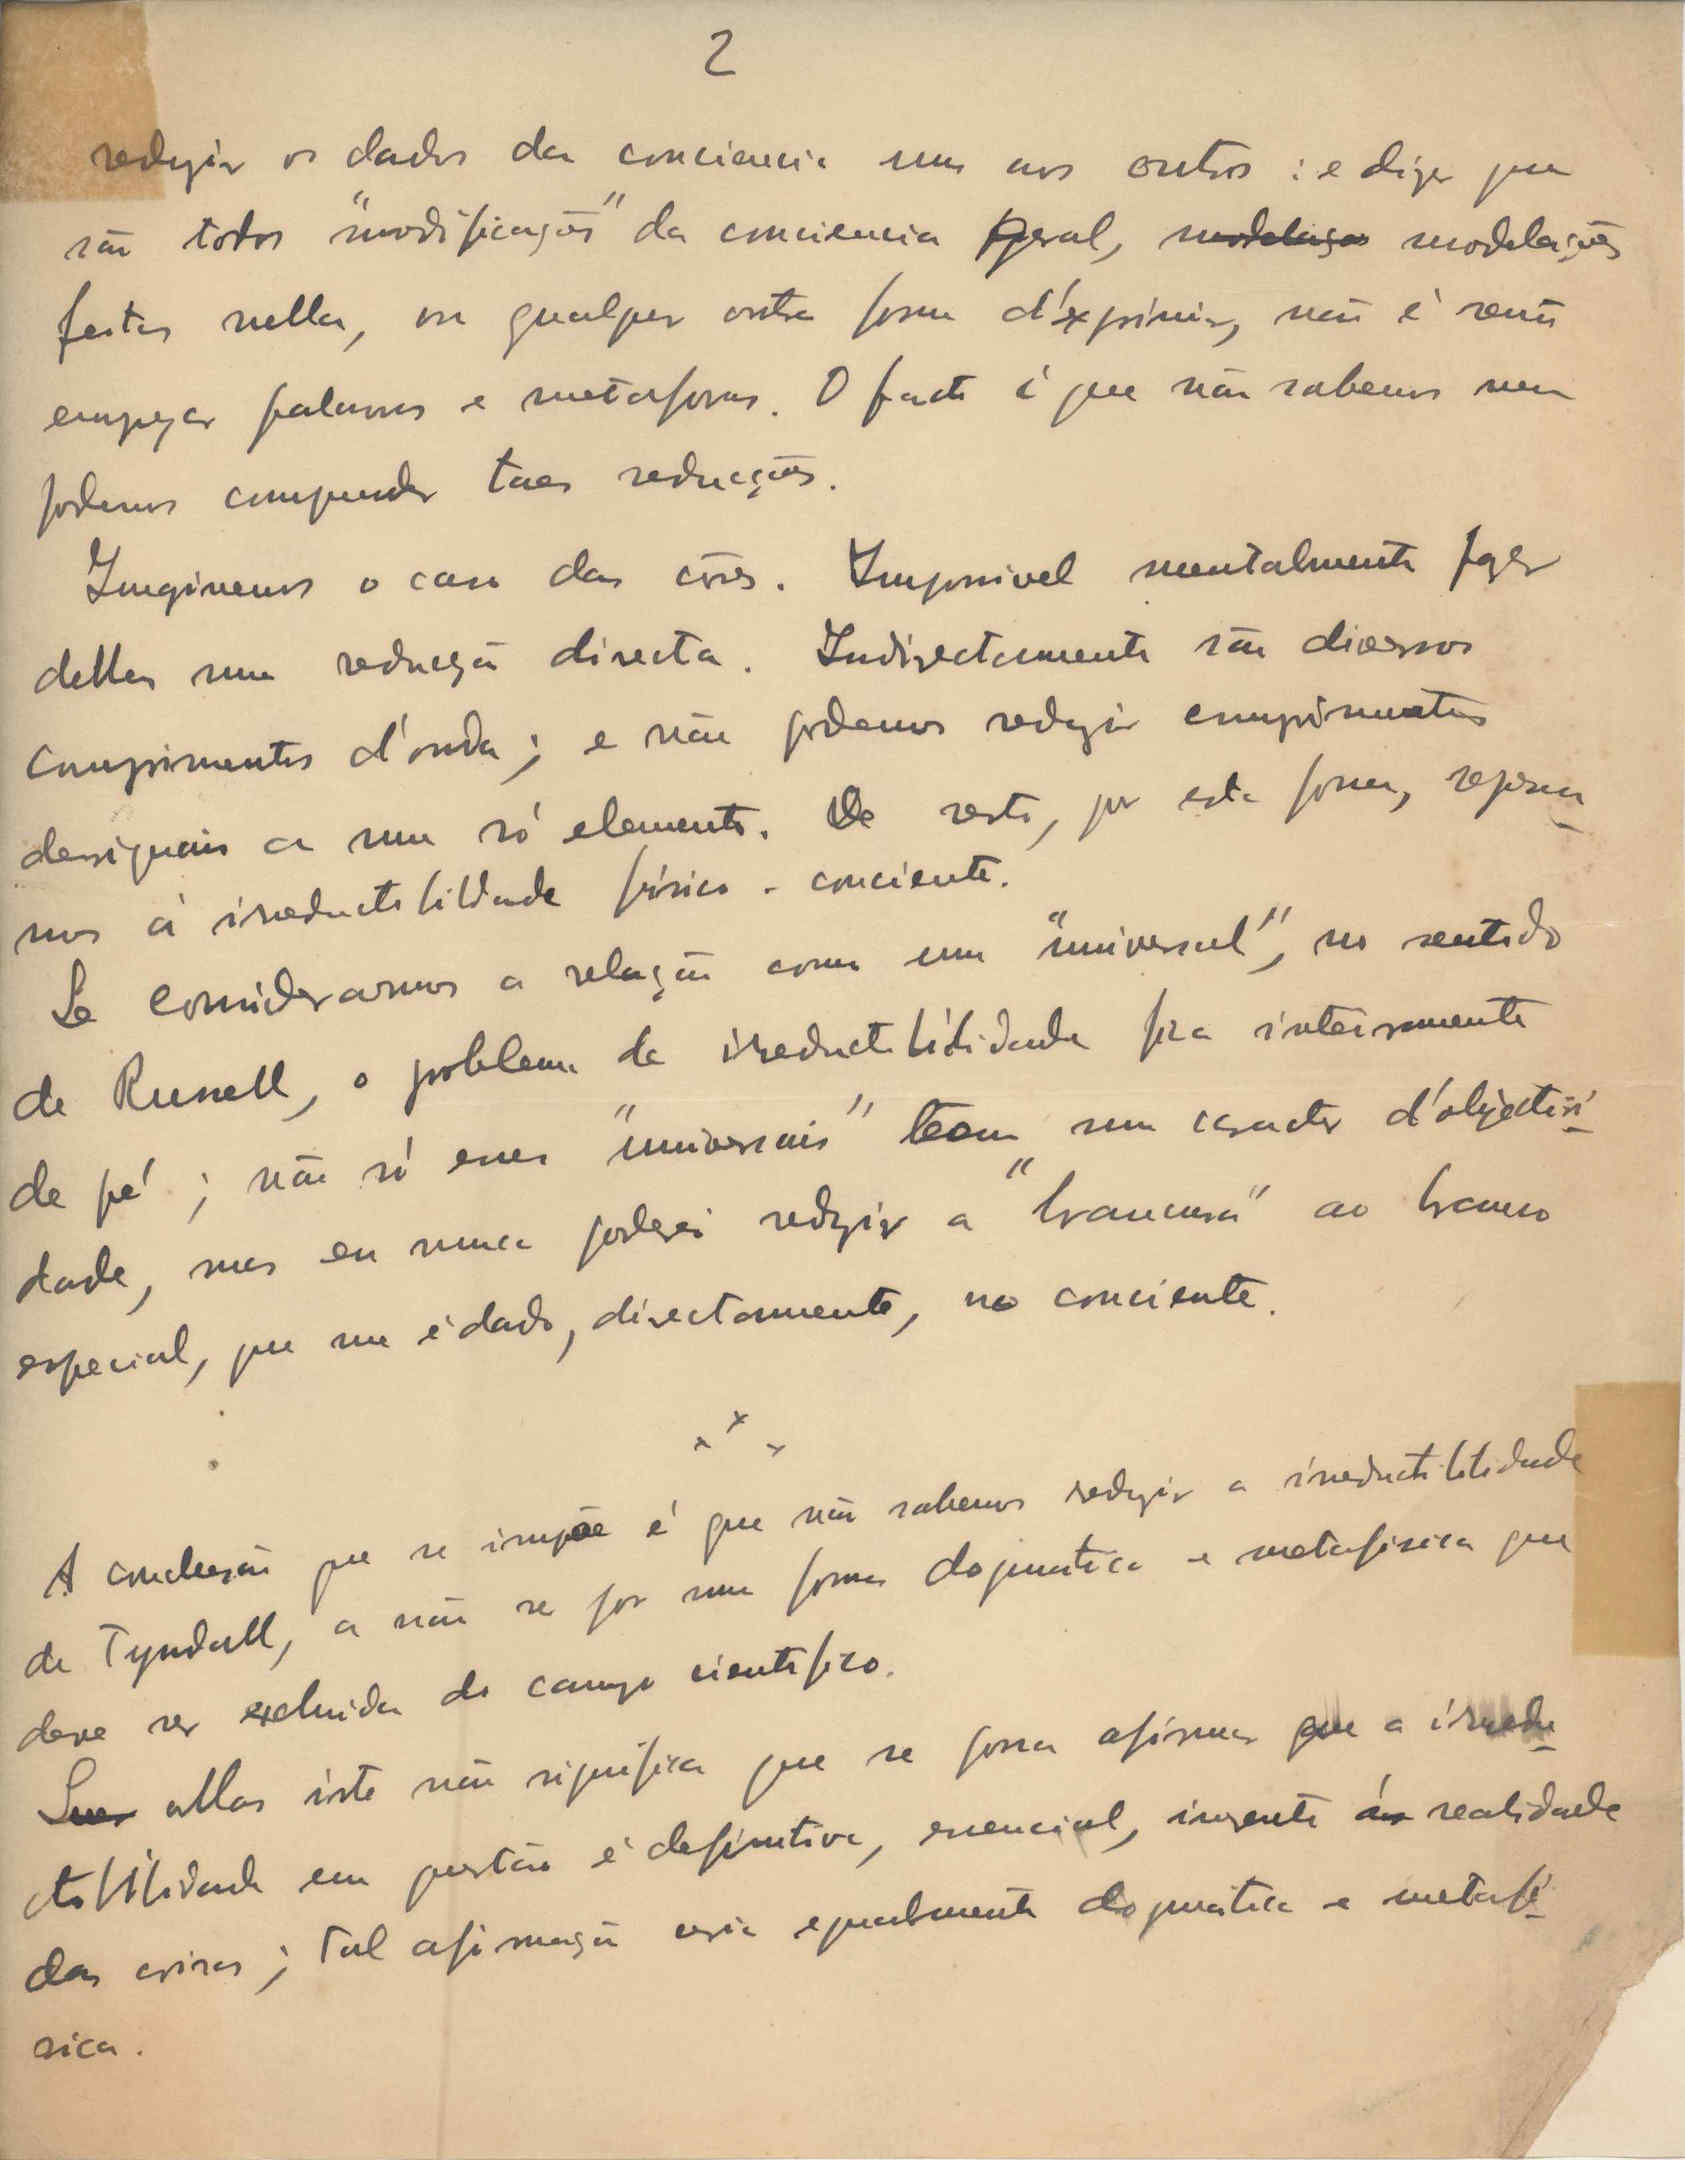 2
reduzir os dados da conciencia uns aos outros : e dizer que
são todos "modificações" da conciencia geral, modelaçoes modelações
feitas nella, ou qualquer outra forma d'exprimir, não é senão
empregar palavras e metaforas. O facto é que não sabemos nem
podemos comprender taes reducções.
Imaginemos o caso das côres. Impossivel mentalmente fazer
dellas uma reducção directa. Indirectamente são diversos
comprimentos d'onda ; e não podemos reduzir comprimentos
desiguais a um só elemento. De resto, por esta forma,
nos á irreductibilidade fisico - conciente.
Se considerarmos a relação como um "universal", no sentido
de Russell, o problema da irreductibilidade fica inteiramente
de pé ; não só esses "universais" teem um caracter d'objectivi-
dade, mas eu nunca poderei reduzir a "brancura" ao branco
especial, que me é dado, directamente, no conciente.
x x x
A conclusão que se impõe é que não sabemos reduzir a irreductibilidade
de Tyndall, a não ser por uma forma dogmatica e metafisica que
deve ser excluida do campo cientifico.
Mas isto não significa que se possa afirmar que a irredu-
ctibilidade em questão é definitiva, essencial, inerente ás realidade
das coisas ; tal afirmação seria egualmente dogmática e metafi-
sica.